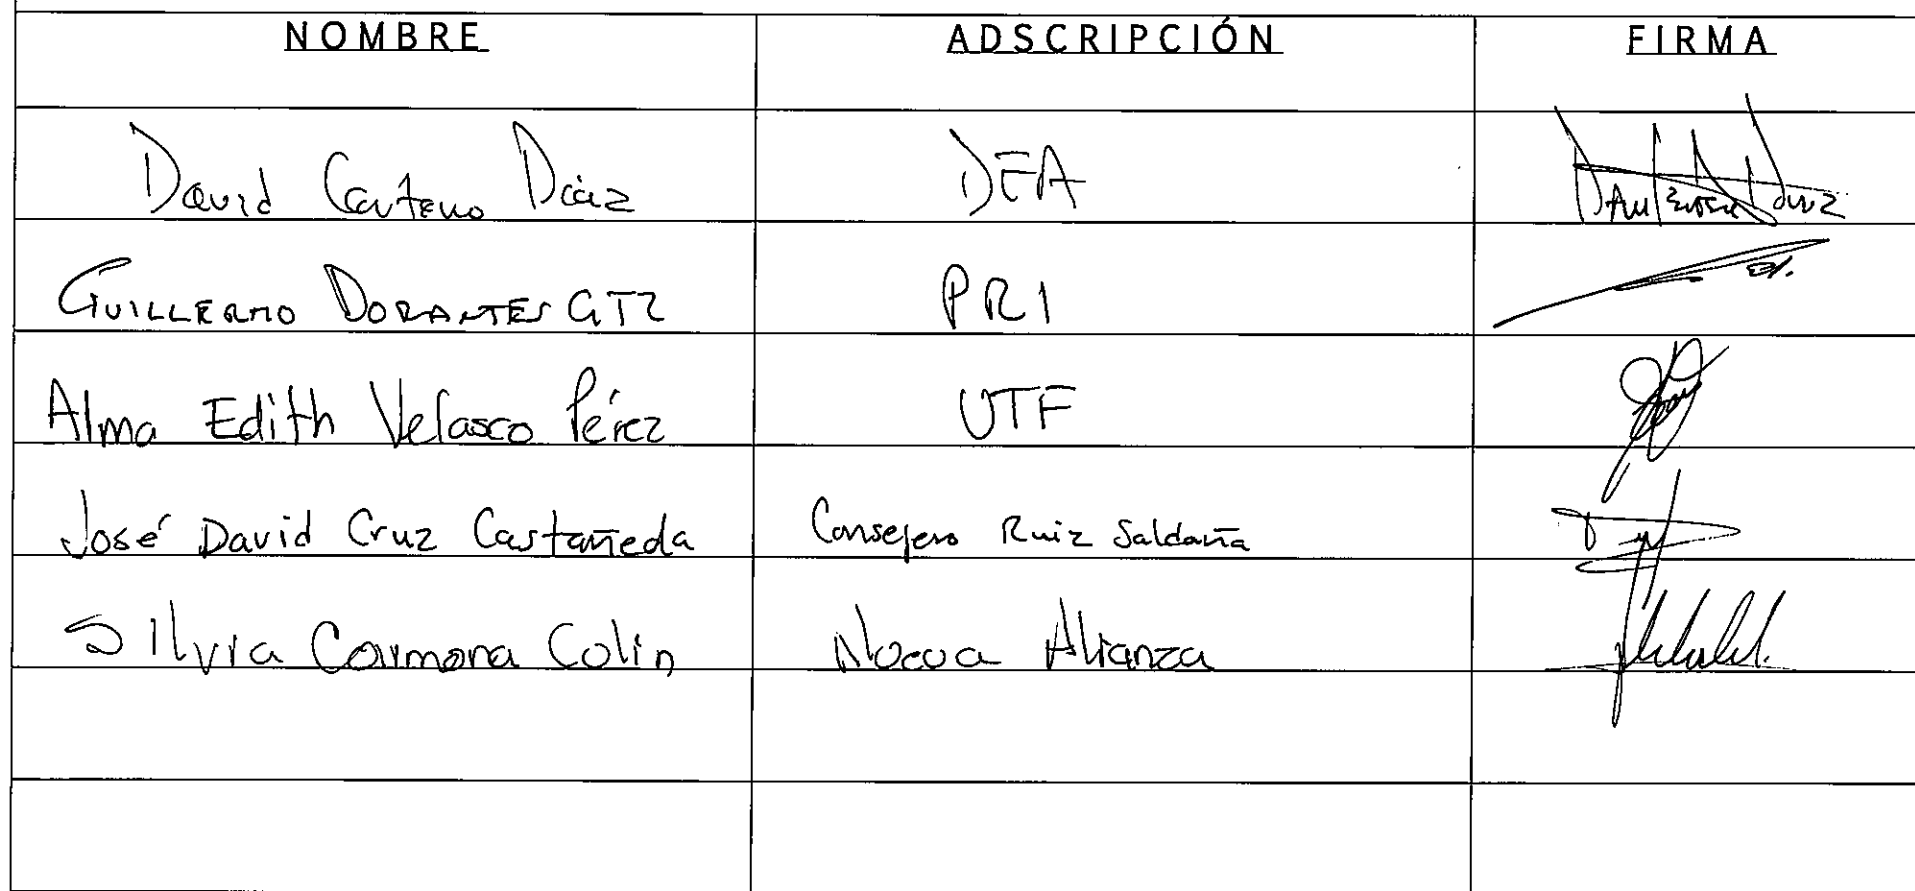 NOMBRE ADSCRIPCIÓN FIRMA
David Díaz DEA
GUILLERMO DORANTES GTZ PRI
Alma Edith Velasco Pérez UTF
José David Cruz Castañeda Consejero Ruiz Saldaña
Silvia Carmona Colin Nueva Alianza